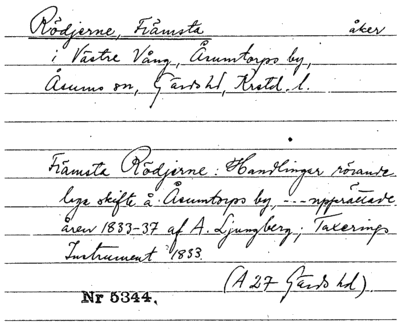 Rödjerne, Främsta åker
i Västre Vång, Åsumtorps by,
Åsums sn, Gärds hd, Krstd. l.
Främsta Rödjerne: Handlingar rörande
laga skifte å Åsumtorps by, --- upprättade
åren 1833-37 af A. Ljungberg; Taxerings
Instrument 1833.
(A 27 Gärds hd)
Nr 5344.